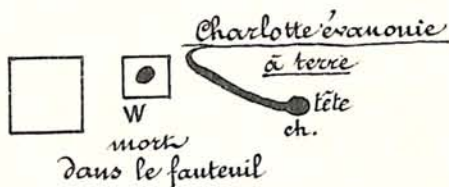 Charlotte évanouie
à terre
tête
W
ch.
mort
dans le fauteuil